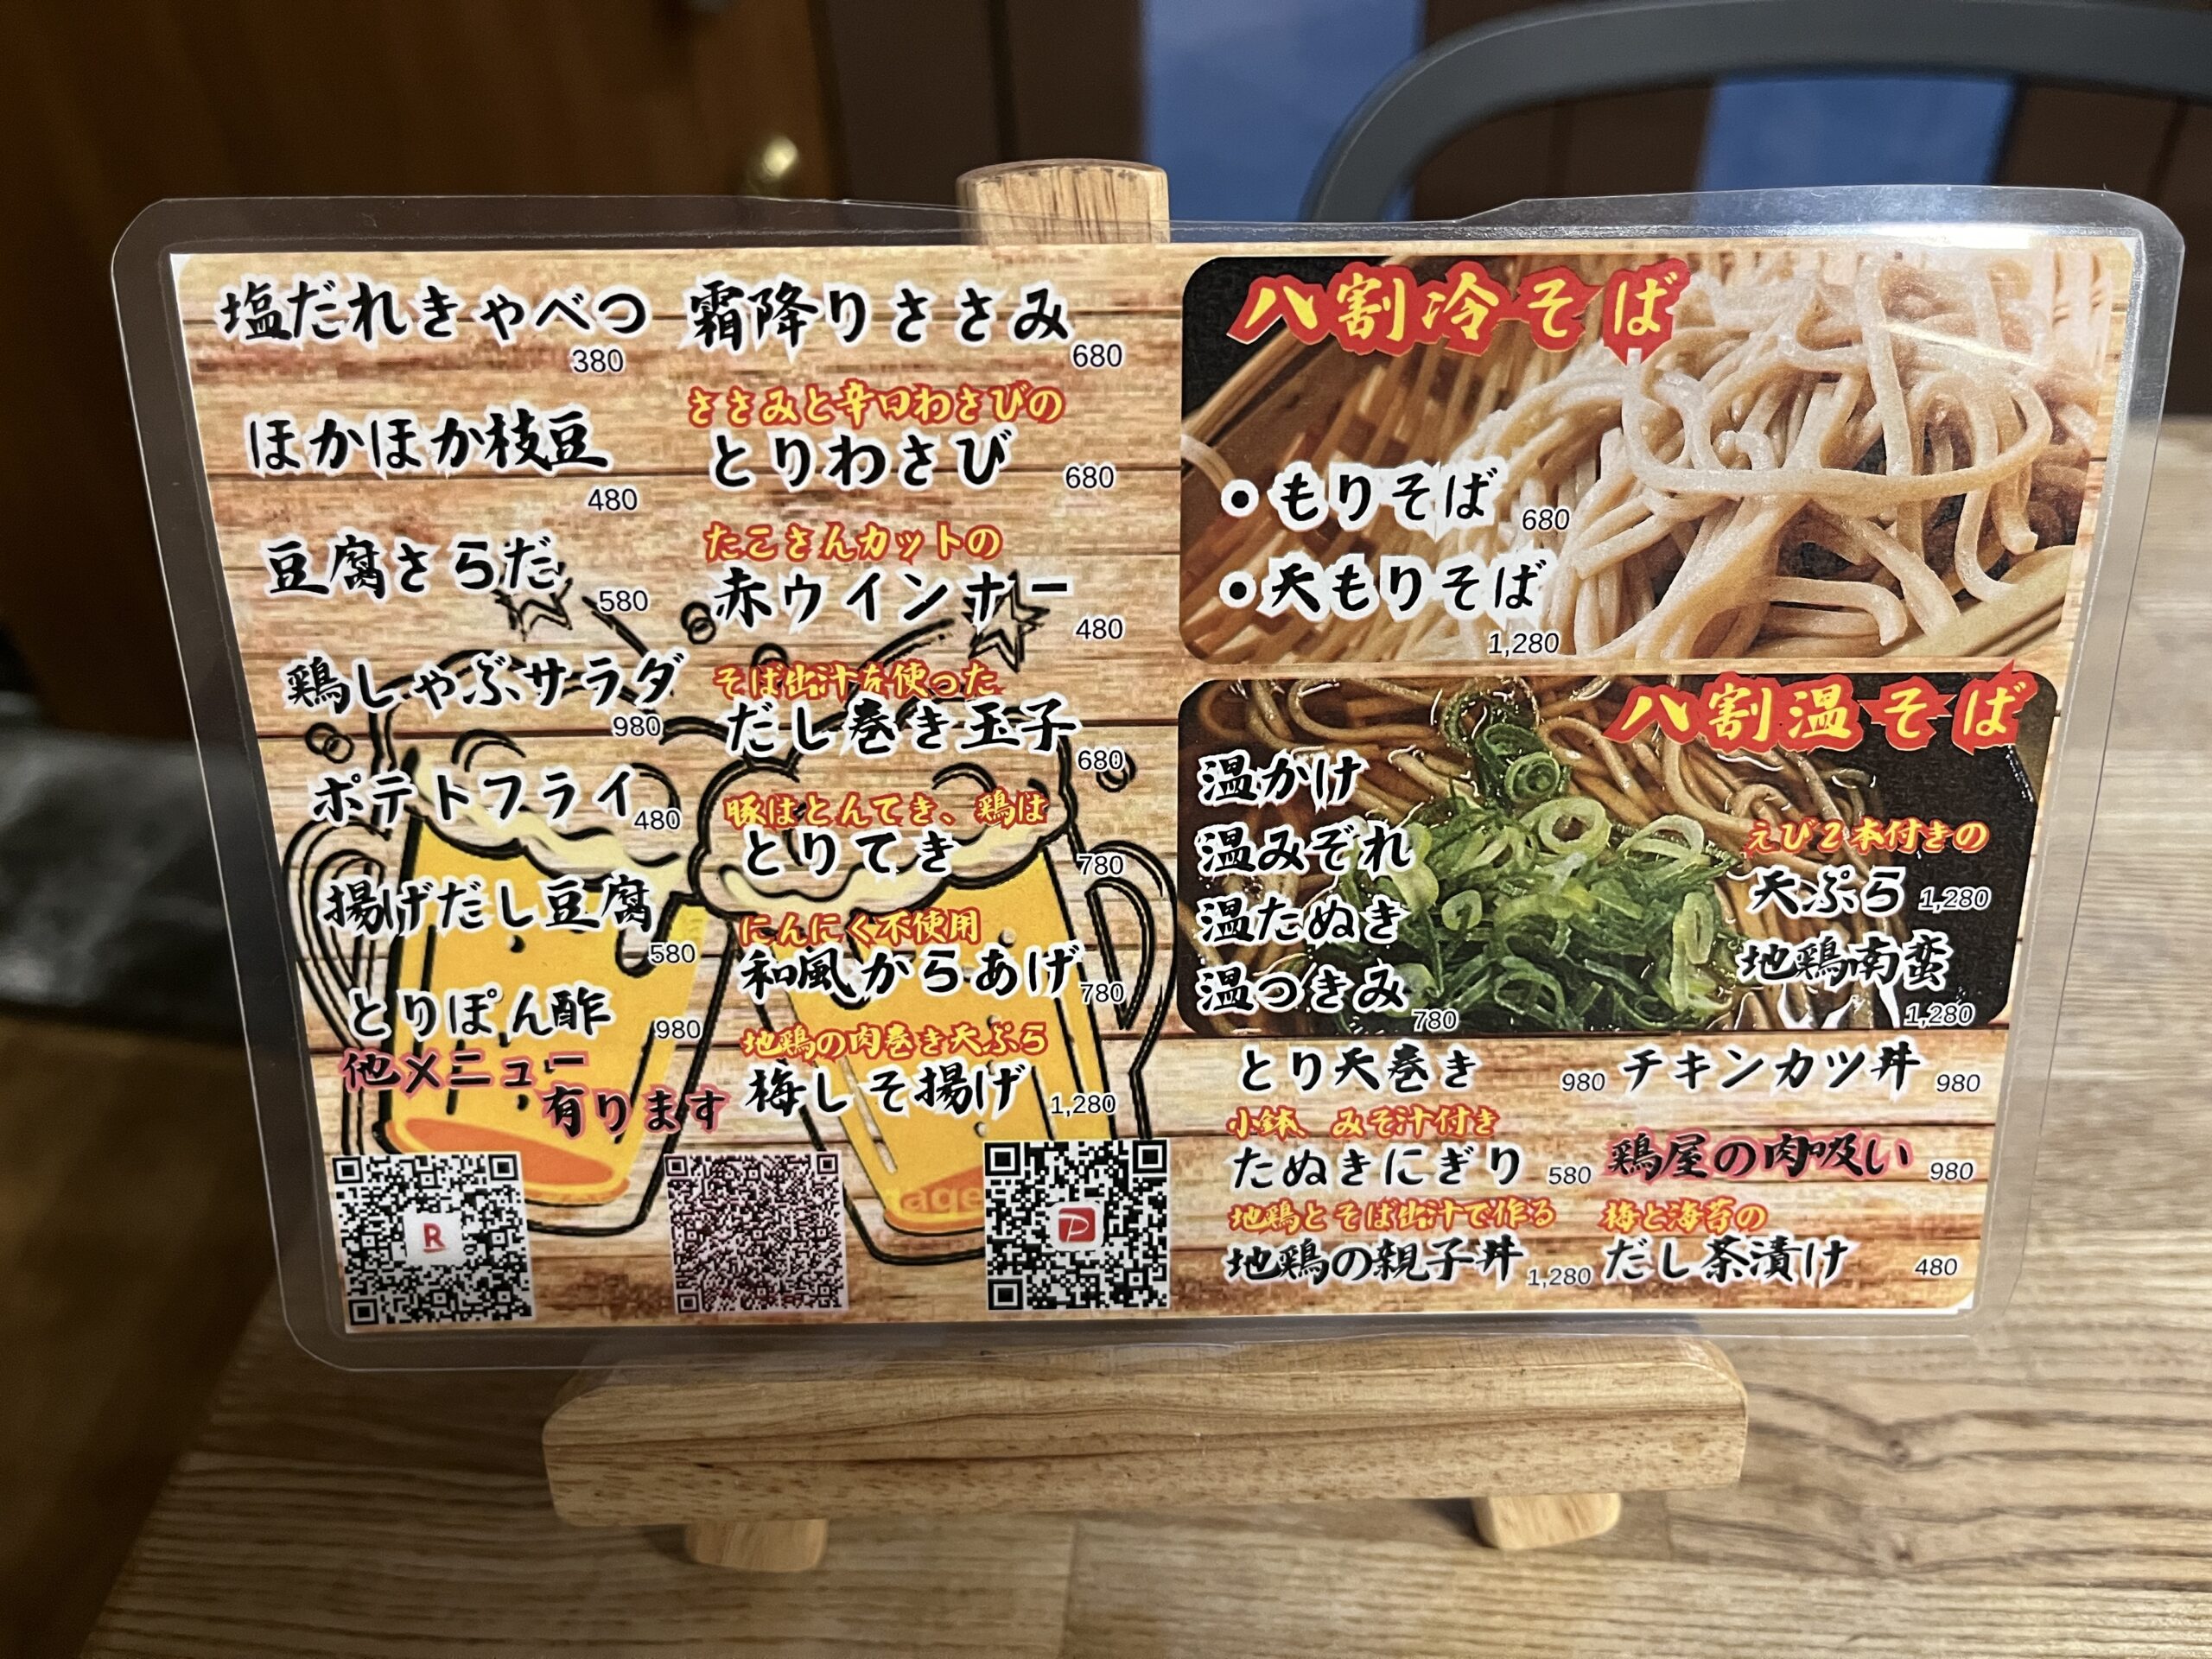 塩だれきゃべつ
380
ほかほか枝豆
480
豆腐さらだ
580
鶏しゃぶサラダ
980
ポテトフライ
480
揚げだし豆腐
580
とりぽん酢
980
他メニュー
有ります
霜降りささみ
680
ささみと辛口わさびの
とりわさび
680
たこさんカットの
赤ウインナー
480
そば出汁を使った
だし巻き玉子
680
豚はとんてき、鶏は
とりてき
780
にんにく不使用
和風からあげ
780
地鶏の肉巻き天ぷら
梅しそ揚げ
1,280
R
P
八割冷そば
・もりそば 680
・天もりそば
1,280
八割温そば
温かけ
温みぞれ
温たぬき
温つきみ
780
えび2本付きの
天ぷら 1,280
地鶏南蛮
1,280
とり天巻き 980
小鉢、みそ汁付き
たぬきにぎり 580
地鶏とそば出汁で作る
地鶏の親子丼 1,280
チキンカツ丼 980
鶏屋の肉吸い 980
梅と海苔の
だし茶漬け 480